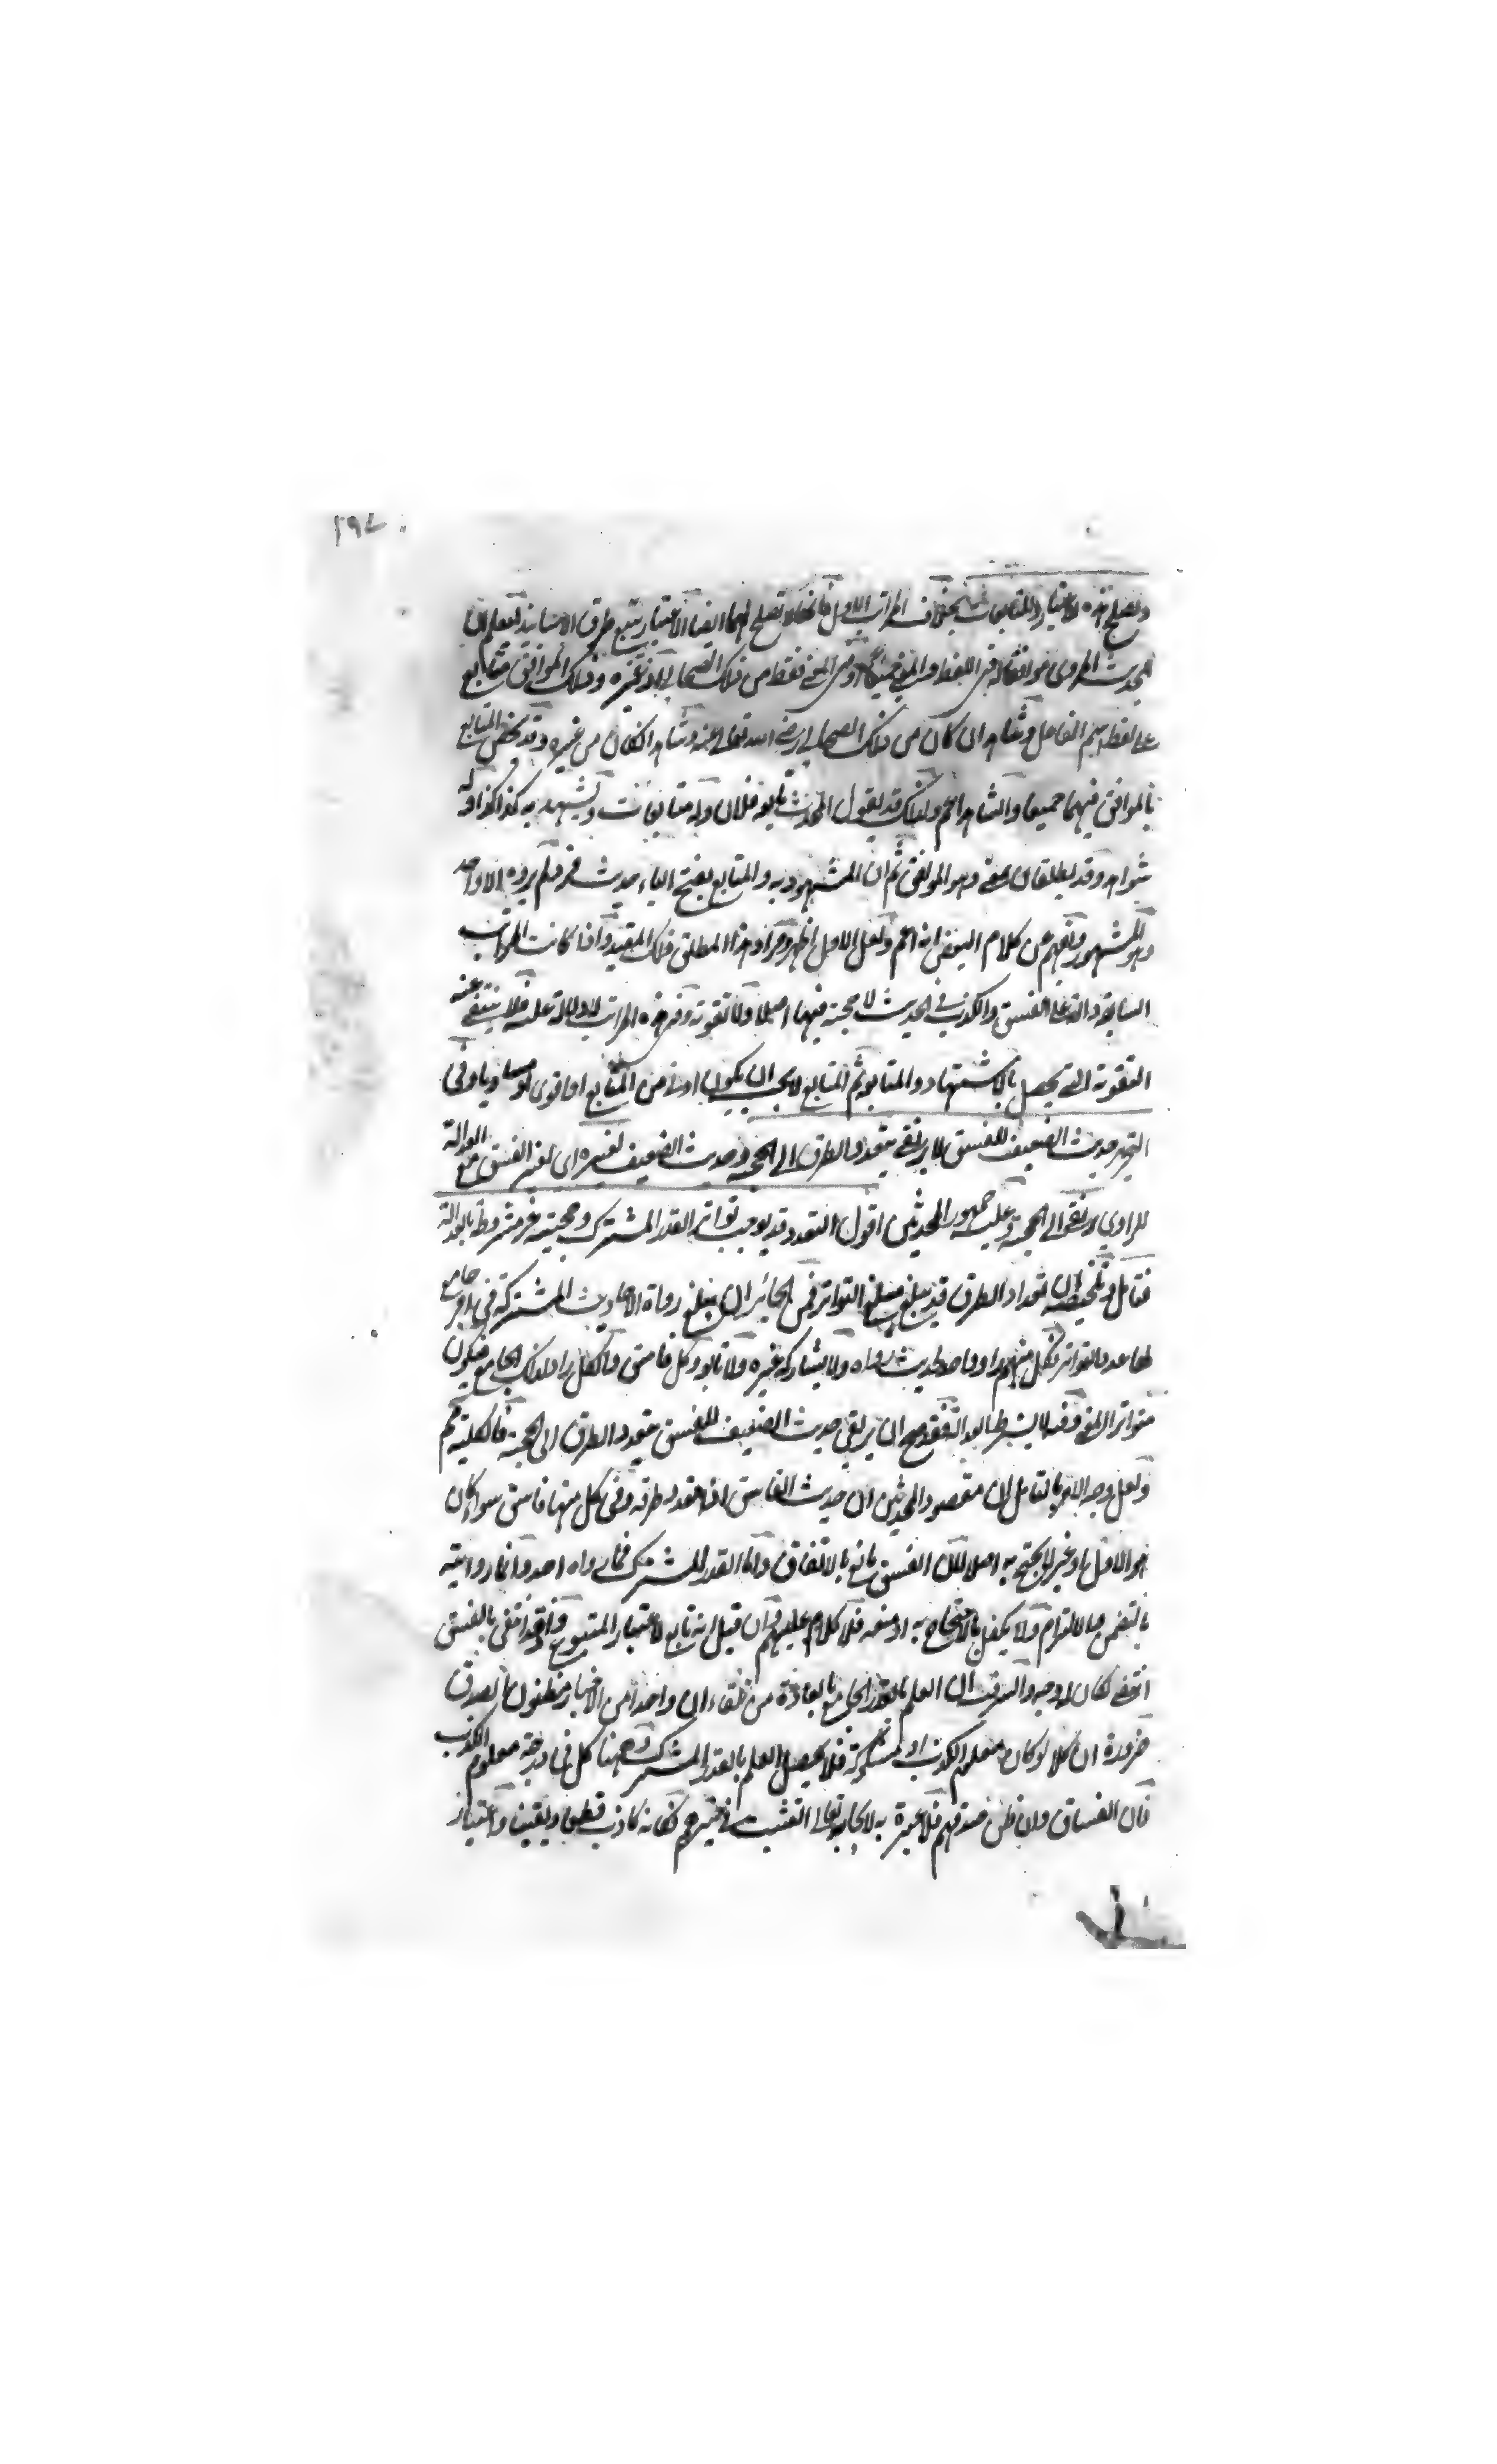 ١٩٧
وتصلح هذه للاعتبار والمتابعات بخلاف المراتب الاول فانها لا تصلح لهما ايضا الاعتبار تتبع طرق الاسانيد ليعلم ان
الحديث المروي موافقا في اللفظ او المعنى جميعا او في المعنى فقط من ذلك الصحابي او غيره وذلك الموافق متابع
على لفظ اسم الفاعل وشاهد ان كان من ذلك الصحابي رضي الله تعالى عنه وشاهد ان كان من غيره وقد يخص المتابع
بالموافق فيهما جميعا والشاهد اعم ولذلك قد يقول المحدث تابعه فلان وله متابعات ويشهد به كذا كذا وله
شواهد وقد يطلقان بمعنى وهو الموافق ثم ان المشهود به والمتابع بفتح الباء حديث فرد لم يروه الا واحد
وهو المشهور ويفهم من كلام البعض انه اعم ولعل الاول اظهر وهذا المطلق ذلك المقيد واذا كانت المراتب
السابقة دالة على الفسق والكذب في الحديث لا حجية فيها اصلا ولا تقوية وفي هذه المراتب لا دلالة عليه فلا ينتفي عنه
التقوية التي تحصل بالاستشهاد والمتابعة ثم المتابع لا يجب ان يكون ادنى من المتابع او اقوى او مساويا وفي
التحرير حديث الضعيف للفسق لا يرتقي بتعدد الطرق الى الحجية وحديث الضعيف لغيره اي لغير الفسق مع العدالة
للراوي يرتقي الى الحجية وعليه جمهور المحدثين اقول التعدد قد يوجب تواتر القدر المشترك وحجيته غير مشروطة بالعدالة
فتأمل وتلخيصه ان تعداد الطرق قد يبلغ مبلغ التواتر فمن الجائز ان يبلغ رواة الاحاديث المشتركة في امر جامع
لها عدد التواتر فكل منهم راو واحد لحديث رواه ولا يشاركه غيره ولا تابع وكل فاسق والكل راو لذلك الجامع فيكون
متواتر المعنى وفيه لا يشترط العدالة فقد صح ان يرتقي حديث الضعيف للفسق بتعدد الطرق الى الحجية فالكلية
ولعل وجه الامر بالتامل ان مقصود المحدثين ان حديث الفاسق اذا تعدد طرقه وفي كل منها فاسق سواء كان
هو الاول او غيره لا يحتج به اصلا لان الفسق مانع بالاتفاق واما القدر المشترك فما رواه احد وانما روايته
بالتضمن والالتزام ولا يكفل بالاحتجاج به او منعه فلا كلام عليهم فان قيل انه تابع لاعتبار المتبوع واذا انتفى بالفسق
انتفى كان له وجه والسر فيه ان العلم بالقدر الجامع بالعادة من تلقاء ان واحدا من الاخبار مظنون الصدق
ضرورة ان كلا لو كان معلوم الكذب او مشكوكه فلا يحصل العلم بالقدر المشترك وههنا كل في درجة معلوم الكذب
فان الفساق وان ظن صدقهم فلا عبرة به لايجابه تعالى التثبت في خبرهم فكانه كاذب قطعا ويقينا واعتبار